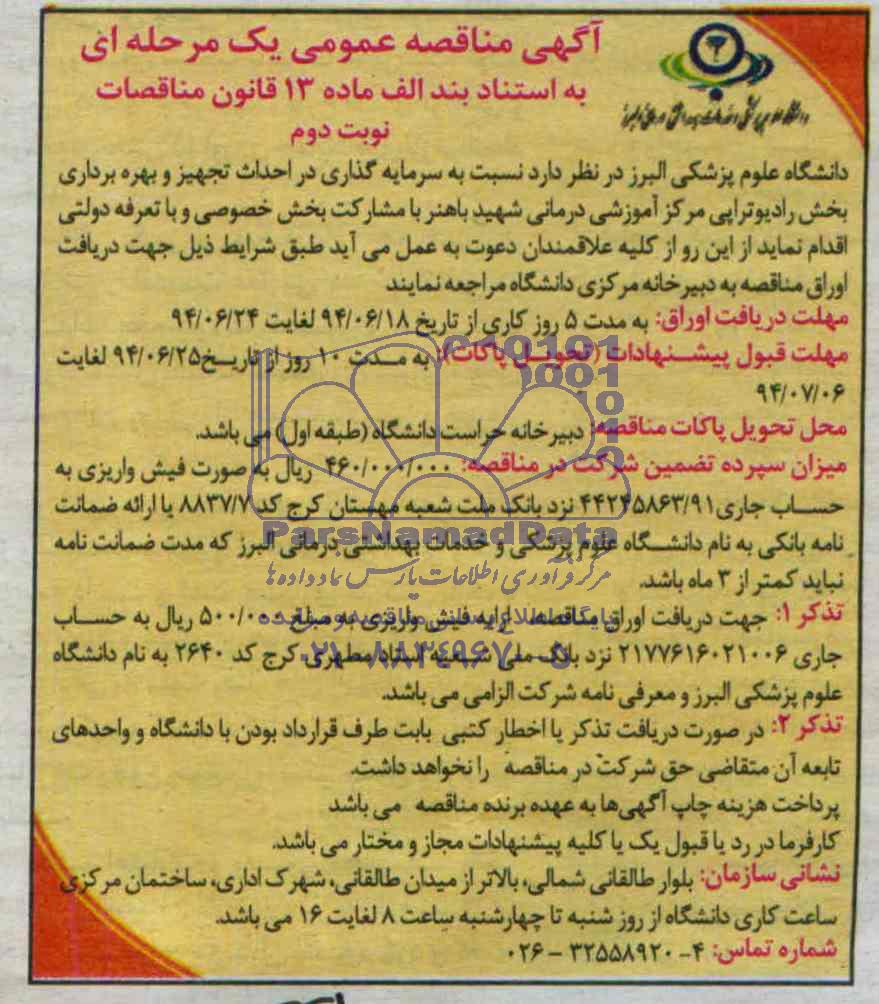 آگهی مناقصه عمومی یک مرحله ای
به استناد بند الف ماده ۱۳ قانون مناقصات
نوبت دوم
دانشگاه علوم پزشکی البرز در نظر دارد نسبت به سرمایه گذاری در احداث تجهیز و بهره برداری
بخش رادیوتراپی مرکز آموزشی درمانی شهید باهنر با مشارکت بخش خصوصی و با تعرفه دولتی
اقدام نماید از این رو از کلیه علاقمندان دعوت به عمل می آید طبق شرایط ذیل جهت دریافت
اوراق مناقصه به دبیرخانه مرکزی دانشگاه مراجعه نمایند
مهلت دریافت اوراق: به مدت ۵ روز کاری از تاریخ ۹۴/۰۶/۱۸ لغایت ۹۴/۰۶/۲۴
مهلت قبول پیشنهادات (تحویل پاکات): به مدت ۱۰ روز از تاریخ ۹۴/۰۶/۲۵ لغایت
۹۴/۰۷/۰۶
محل تحویل پاکات مناقصه: دبیرخانه حراست دانشگاه (طبقه اول) می باشد.
میزان سپرده تضمین شرکت در مناقصه: ۴۶۰/۰۰۰/۰۰۰ ریال به صورت فیش واریزی به
حساب جاری ۴۴۲۴۵۸۶۳/۹۱ نزد بانک ملت شعبه مهستان کرج کد ۸۸۳۷/۷ یا ارائه ضمانت
نامه بانکی به نام دانشگاه علوم پزشکی و خدمات بهداشتی درمانی البرز که مدت ضمانت نامه
نباید کمتر از ۳ ماه باشد.
تذکر ۱: جهت دریافت اوراق مناقصه ارایه فیش واریزی به مبلغ ۵۰۰/۰۰۰ ریال به حساب
جاری ۲۱۷۷۶۱۶۰۲۱۰۰۶ نزد بانک ملی شعبه استاد مطهری کرج کد ۲۶۴۰ به نام دانشگاه
علوم پزشکی البرز و معرفی نامه شرکت الزامی می باشد.
تذکر ۲: در صورت دریافت تذکر یا اخطار کتبی بابت طرف قرارداد بودن با دانشگاه و واحدهای
تابعه آن متقاضی حق شرکت در مناقصه را نخواهد داشت.
پرداخت هزینه چاپ آگهی‌ها به عهده برنده مناقصه می باشد
کارفرما در رد یا قبول یک یا کلیه پیشنهادات مجاز و مختار می باشد.
نشانی سازمان: بلوار طالقانی شمالی، بالاتر از میدان طالقانی، شهرک اداری، ساختمان مرکزی
ساعت کاری دانشگاه از روز شنبه تا چهارشنبه ساعت ۸ لغایت ۱۶ می باشد.
شماره تماس: ۴-۳۲۵۵۸۹۲۰ - ۰۲۶
ParsNamadData
مرکز فرآوری اطلاعات پارس نماد داده ها